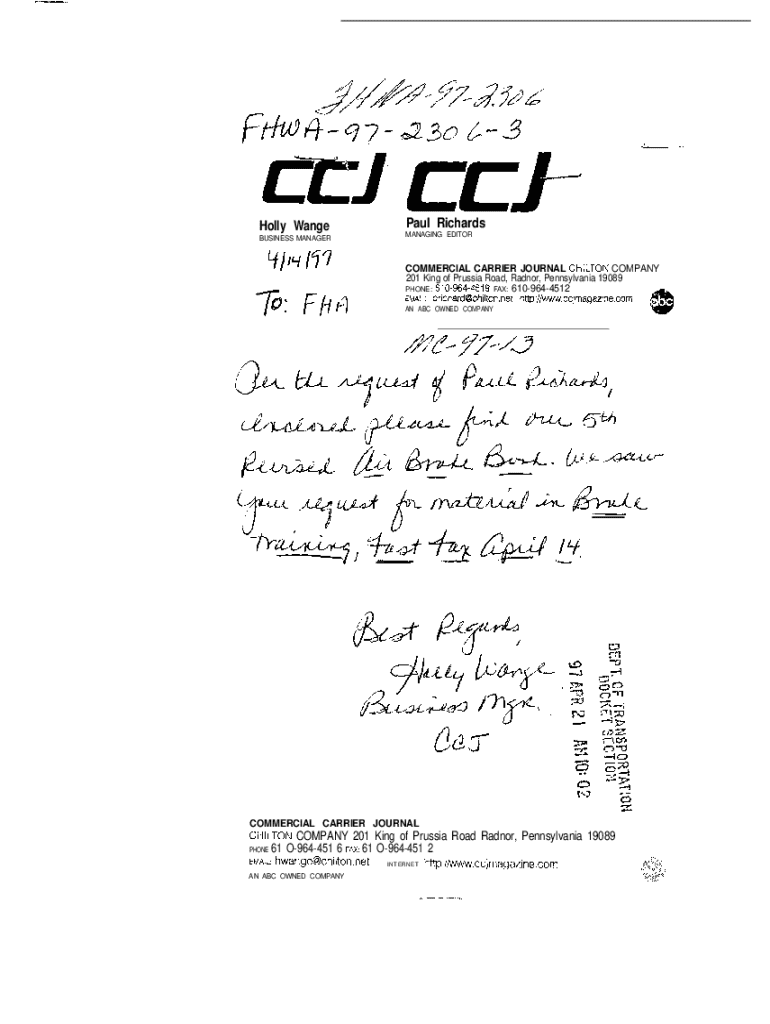 FHWA-97-2306
FHWA-97-2306-3
CCJ CCJ
Holly Wange
BUSINESS MANAGER
Paul Richards
MANAGING EDITOR
4/14/97
To: FHA
COMMERCIAL CARRIER JOURNAL CHILTON COMPANY
201 King of Prussia Road, Radnor, Pennsylvania 19089
PHONE: 610-964-4519 FAX: 610-964-4512
EMAIL: prichard@chilton.net http://www.ccjmagazine.com
abc
AN ABC OWNED COMPANY
MC-97-13
Per the request of Paul Richards,
enclosed please find our 5th
Revised Air Brake Book. We saw
your request for material in Brake
Training, Fast Fax April 14.
Best Regards,
Holly Wange
Business Mgr.
CCJ
DEPT. OF TRANSPORTATION
DOCKET SECTION
97 APR 21 AM 10: 02
COMMERCIAL CARRIER JOURNAL
CHILTON COMPANY 201 King of Prussia Road Radnor, Pennsylvania 19089
PHONE 61 O-964-451 6 FAX: 61 O-964-451 2
EMAIL: hwange@chilton.net INTERNET http://www.ccjmagazine.com
AN ABC OWNED COMPANY